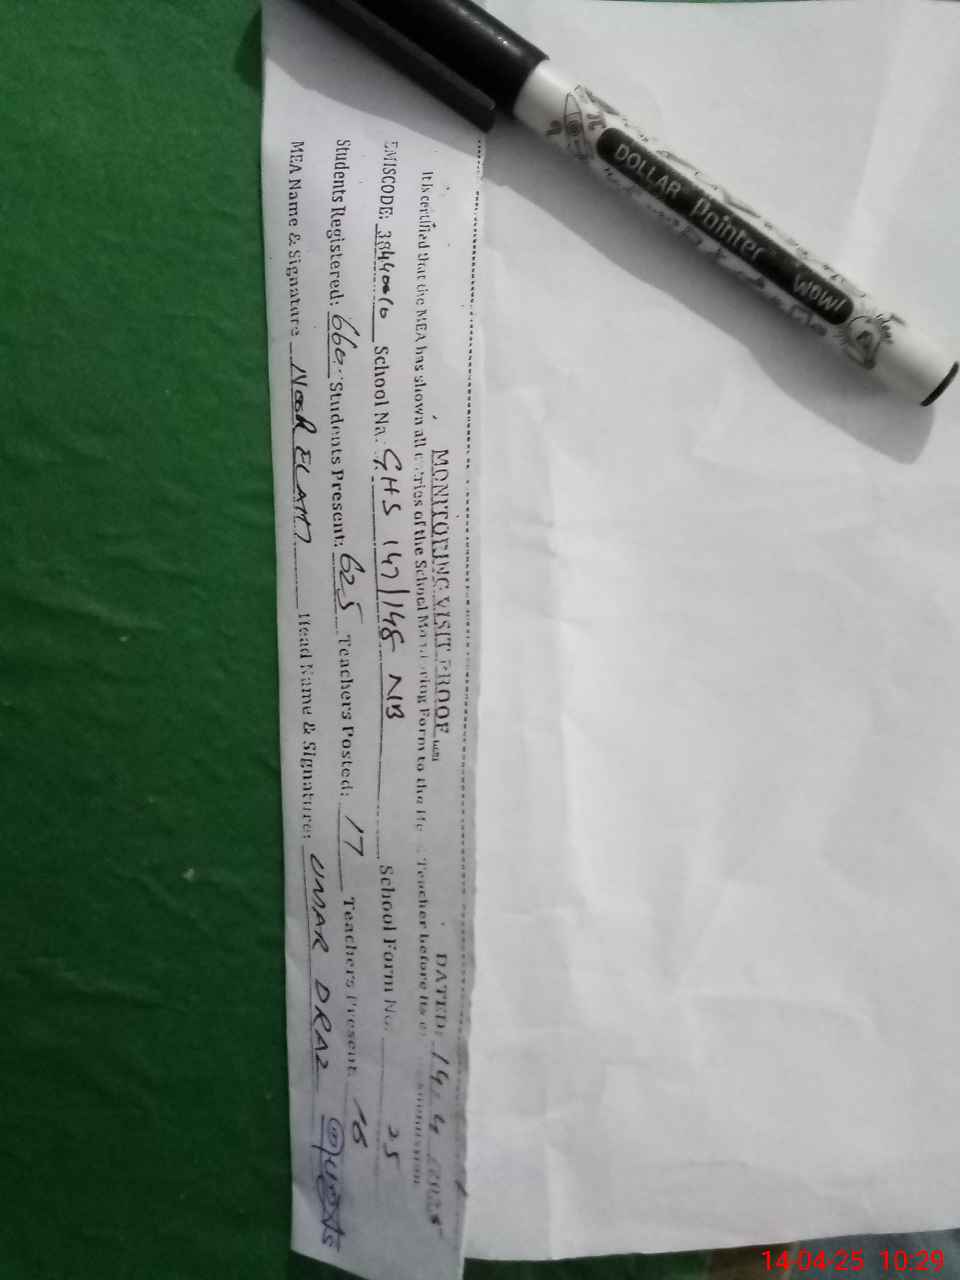 MONITORING VISIT PROOF DATED: 14-4-2025
It is certified that the MEA has shown all entries of the School Monitoring Form to the Teacher before its
EMISCODE: School Na: GHS 147/148 NB School Form No. 25
Students Registered: 660 Students Present: 625 Teachers Posted: 17 Teachers Present: 16
MEA Name & Signature NOOR ELAHI Head Name & Signature: UMAR DRAZ
DOLLAR Pointer WOW!
14-04-25 10:29